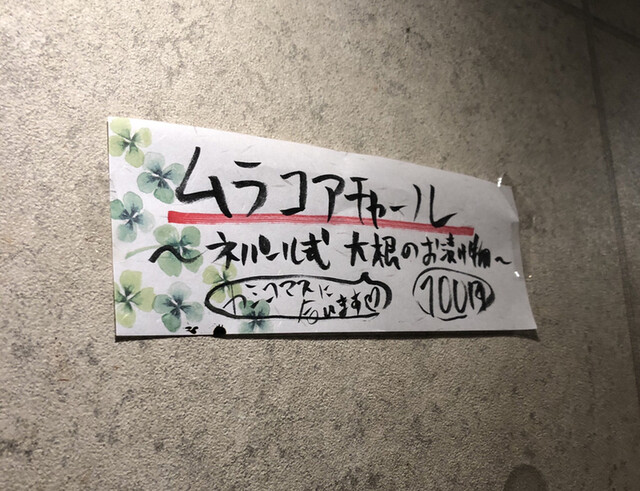 ムラコアチャール
〜ネパール式 大根のお漬け物〜
マスに合います
100円